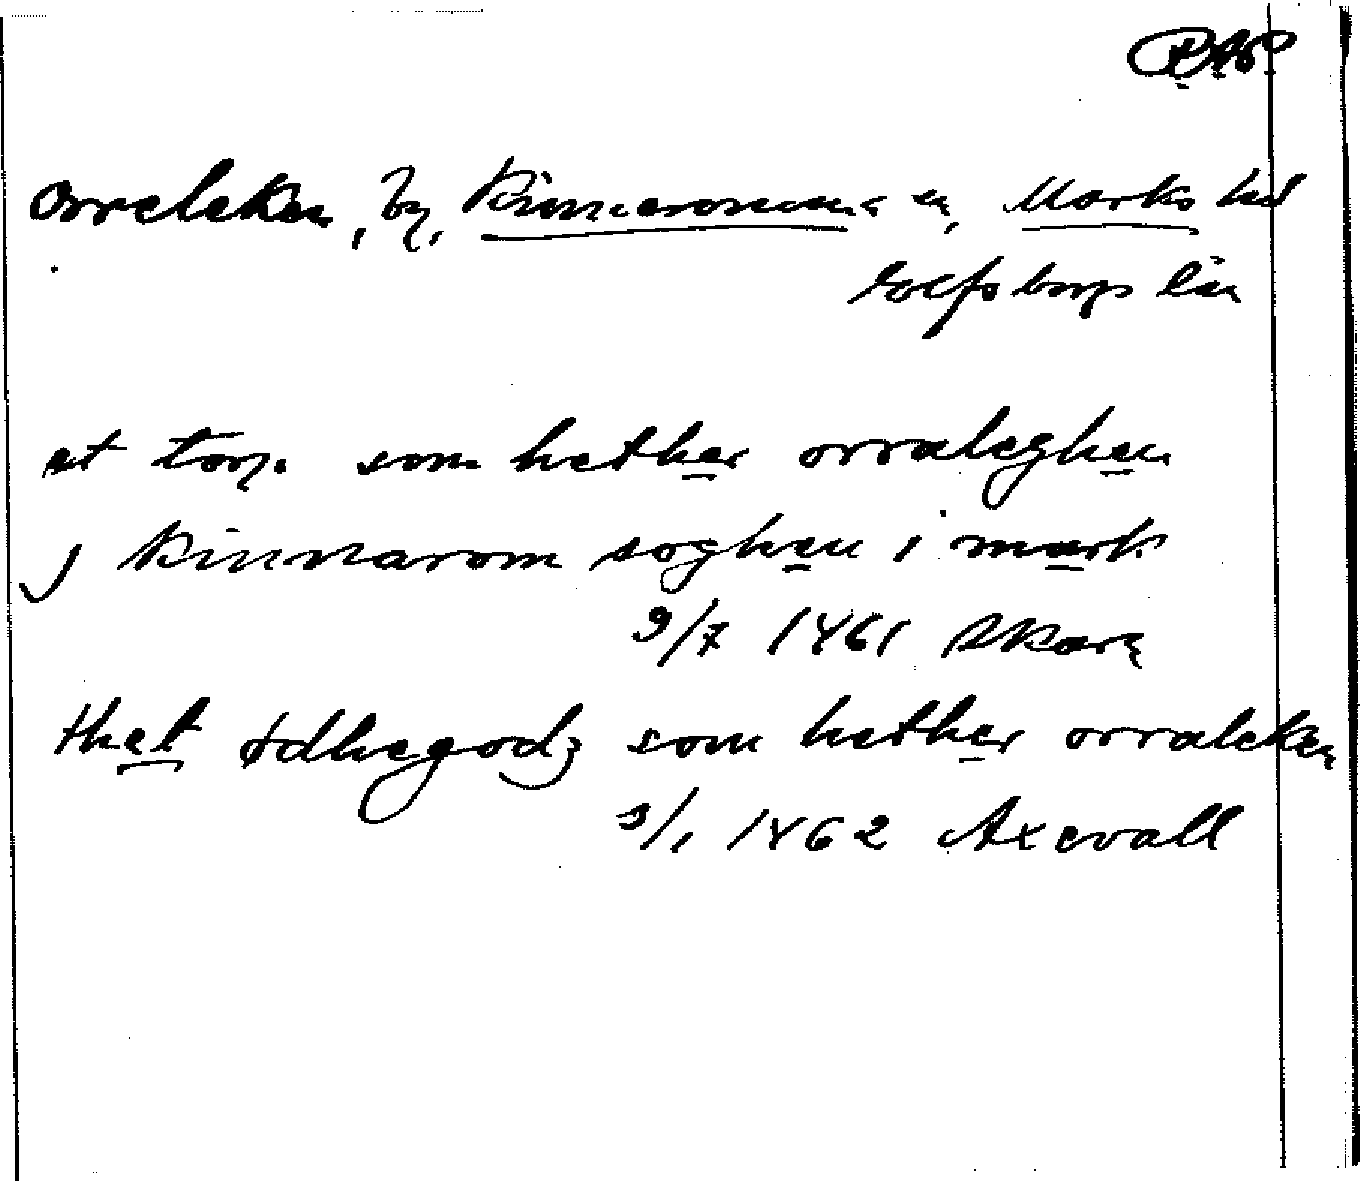 RAP
Orreleken, by, Kinnarumma sn, Marks hd
Elfsborgs län
et torp som hether orraleghen
j kinnarom soghen i mark
9/7 1461 Skara
thet ødhegodz som hether orraleken
9/1 1462 Axevall